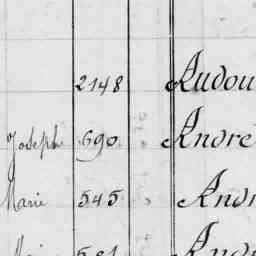 2148 Audou
Joseph 690 André
Marie 545 Andr
581 And